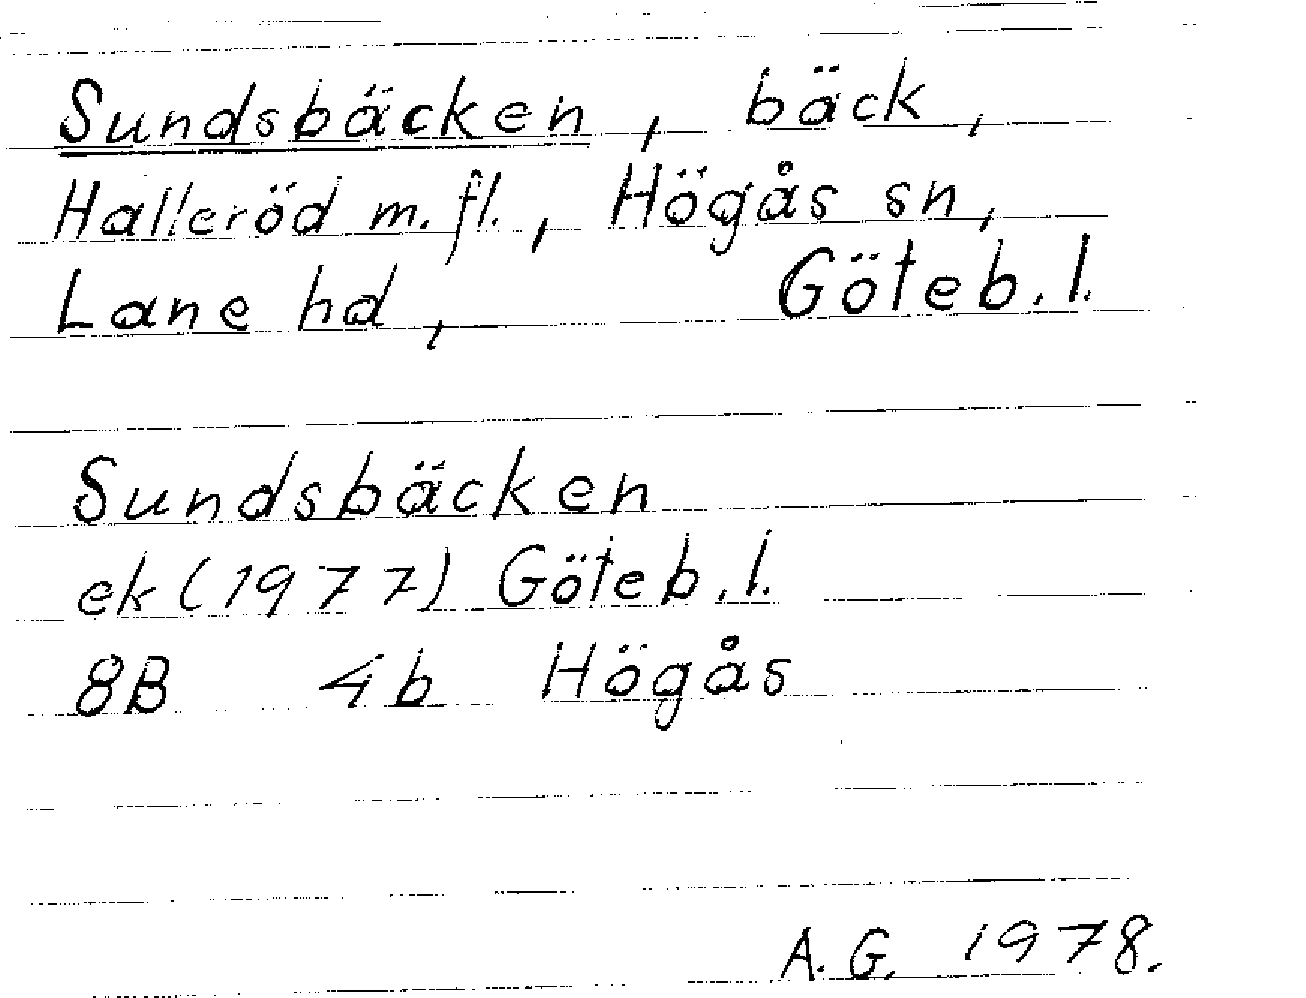 Sundsbäcken, bäck,
Halleröd m.fl., Högås sn,
Lane hd, Göteb.l.
Sundsbäcken
ek(1977) Göteb.l.
8B 4b Högås
A.G. 1978.